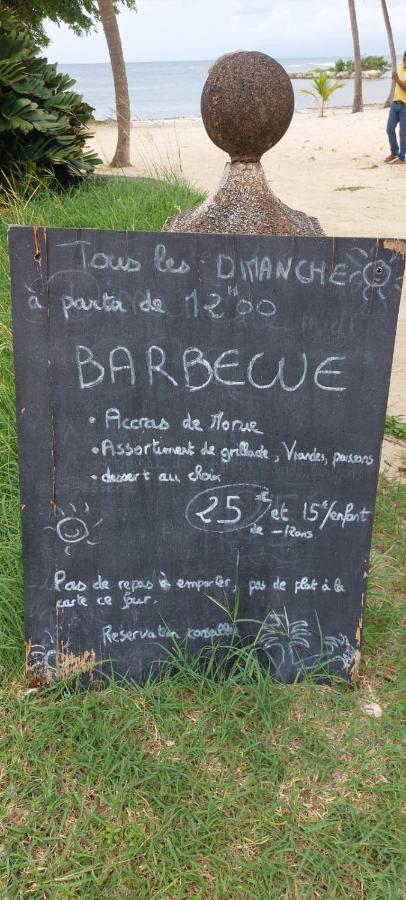 Tous les DIMANCHE
à partir de 12H00
BARBECUE
• Accras de Morue
• Assortiment de grillade, Viandes, poissons
• dessert au choix
25€ et 15€/enfant
de -12ans
Pas de repas à emporter, pas de plat à la
carte ce jour.
Reservation conseillé